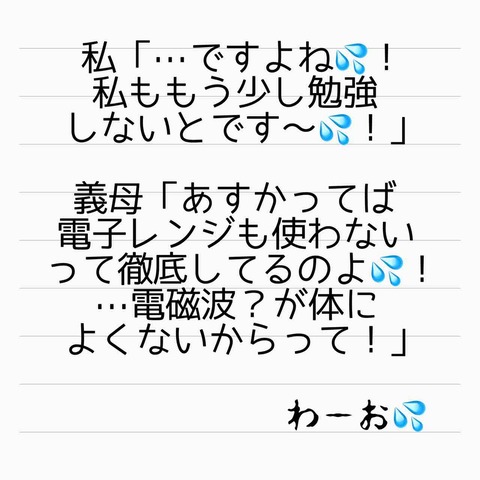 私「…ですよね💦！
私ももう少し勉強
しないとです〜💦！」
義母「あすかってば
電子レンジも使わない
って徹底してるのよ💦！
…電磁波？が体に
よくないからって！」
わーお💦